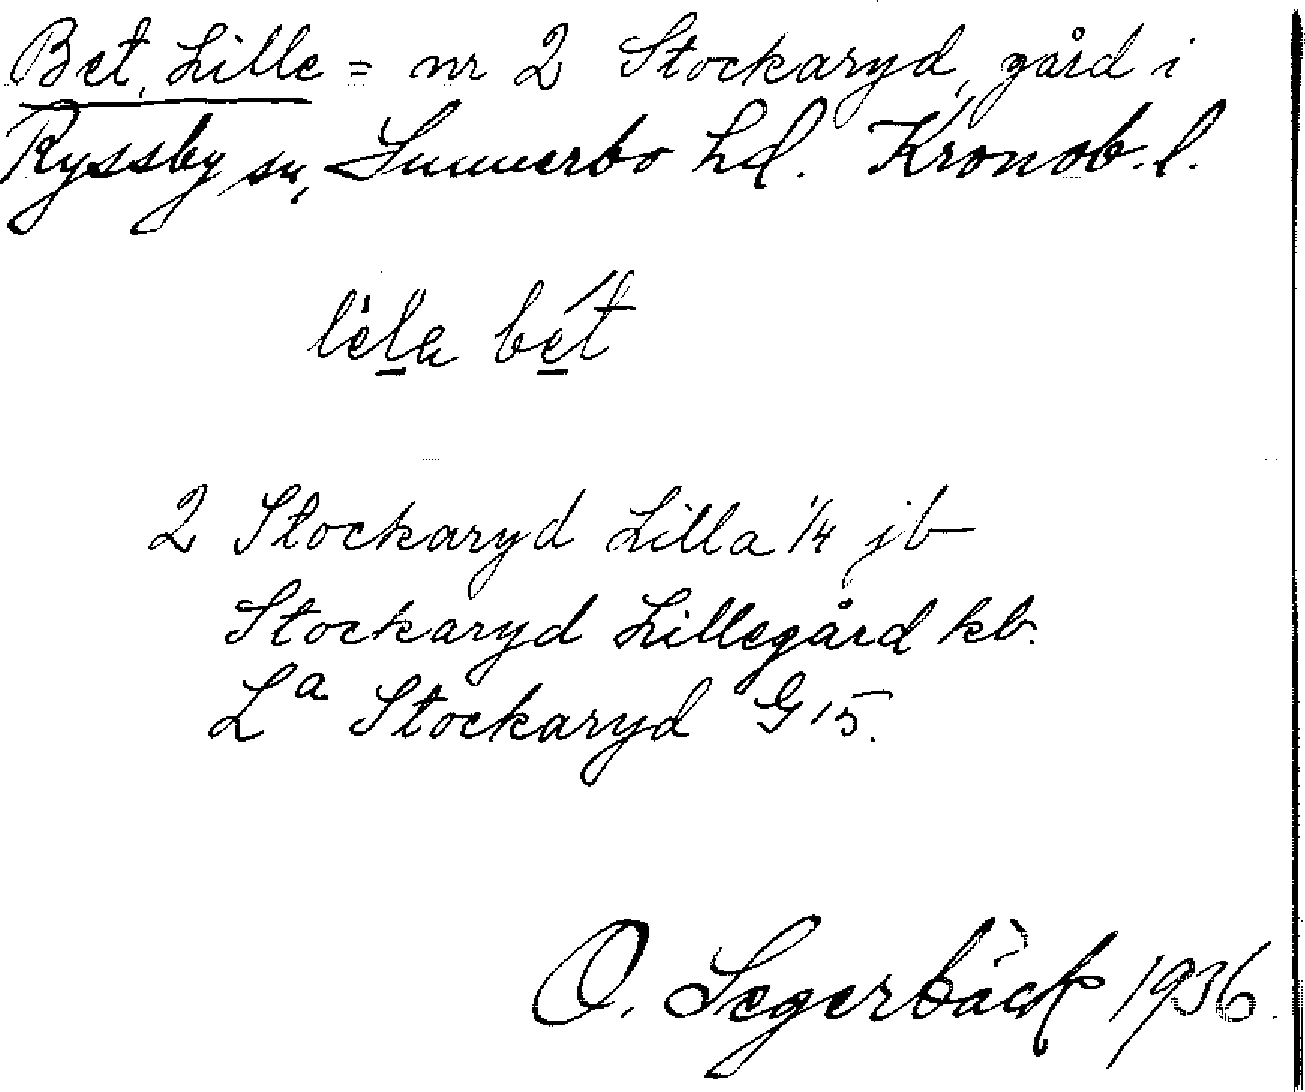 Bet, Lille = nr 2 Stockaryd, gård i
Ryssby sn, Sunnerbo hd. Kronob. l.
lela bet
2 Stockaryd Lilla 1/4 jb
Stockaryd Lillegård kb.
La Stockaryd G 15.
O. Segerbäck 1936.